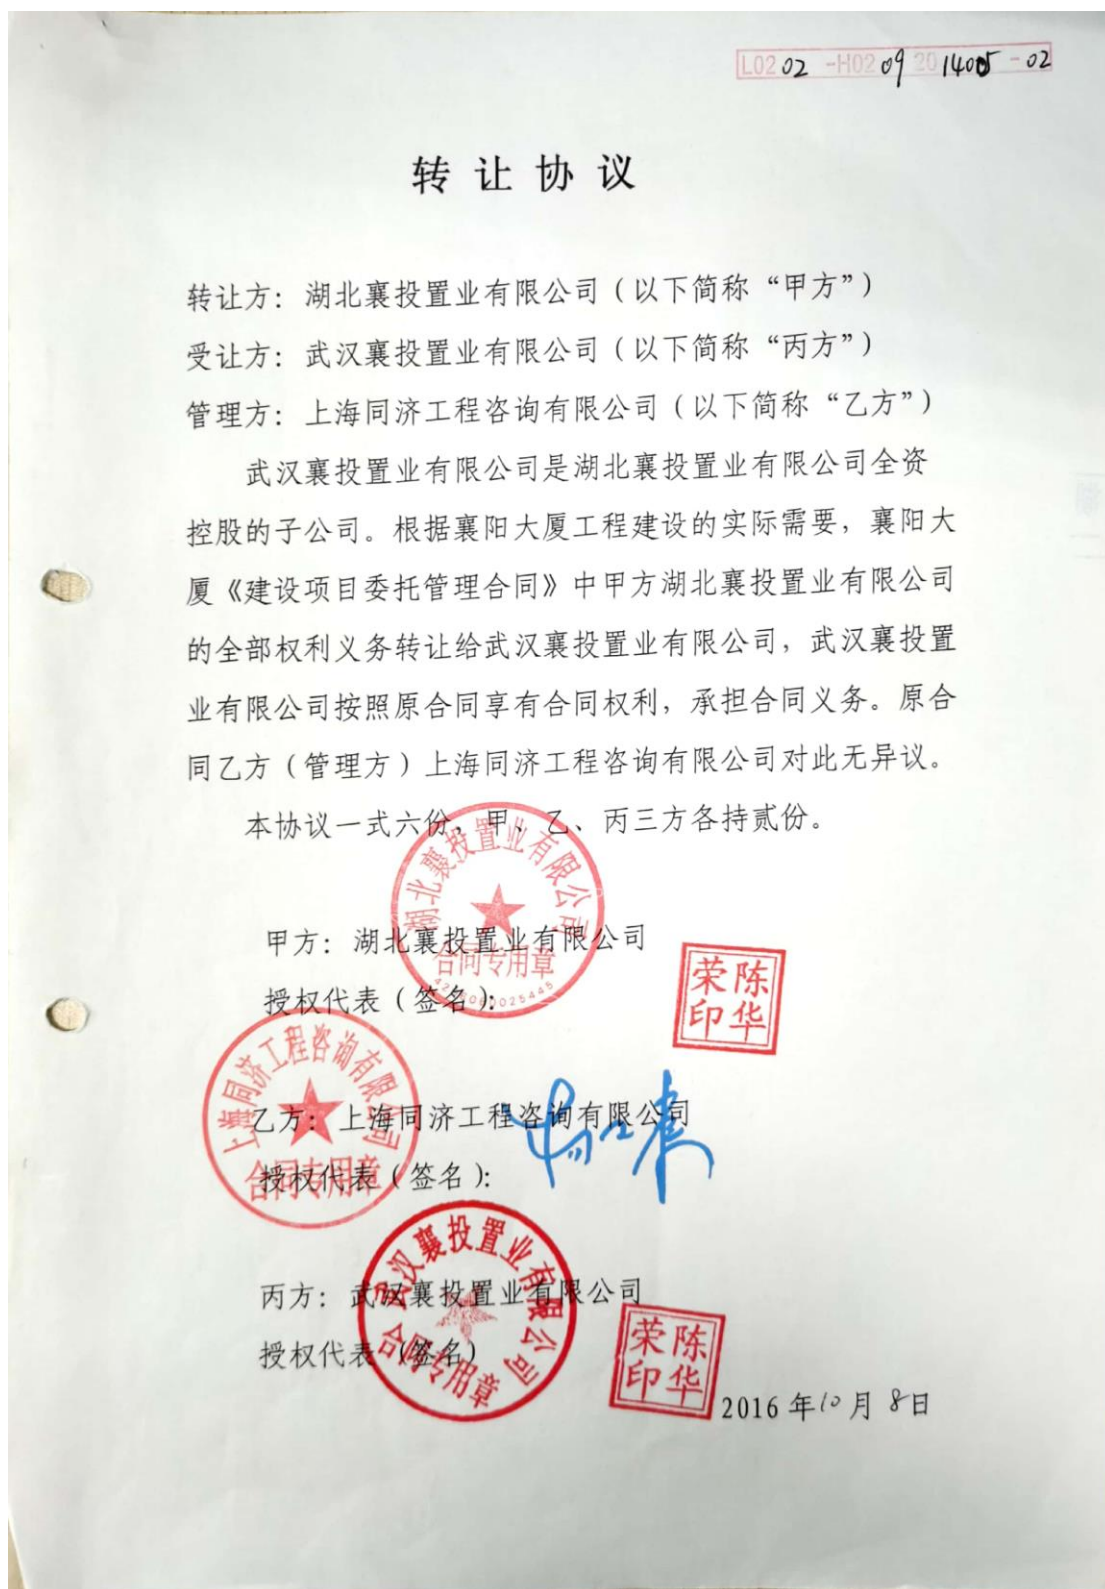 L0202-H0209201405-02
转让协议
转让方：湖北襄投置业有限公司（以下简称“甲方”）
受让方：武汉襄投置业有限公司（以下简称“丙方”）
管理方：上海同济工程咨询有限公司（以下简称“乙方”）
武汉襄投置业有限公司是湖北襄投置业有限公司全资
控股的子公司。根据襄阳大厦工程建设的实际需要，襄阳大
厦《建设项目委托管理合同》中甲方湖北襄投置业有限公司
的全部权利义务转让给武汉襄投置业有限公司，武汉襄投置
业有限公司按照原合同享有合同权利，承担合同义务。原合
同乙方（管理方）上海同济工程咨询有限公司对此无异议。
本协议一式六份，甲、乙、丙三方各持贰份。
湖北襄投置业有限公司
合同专用章
甲方：湖北襄投置业有限公司
授权代表（签名）：
陈华荣印
上海同济工程咨询有限公司
合同专用章
乙方：上海同济工程咨询有限公司
授权代表（签名）：
武汉襄投置业有限公司
合同专用章
丙方：武汉襄投置业有限公司
授权代表（签名）
陈华荣印
2016年10月8日